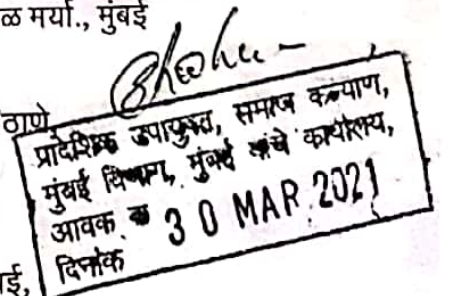 ळ मर्या., मुंबई
ठाणे
प्रादेशिक उपायुक्त, समाज कल्याण,
मुंबई विभाग, मुंबई यांचे कार्यालय,
आवक क
30 MAR 2021
दिनांक
ई,